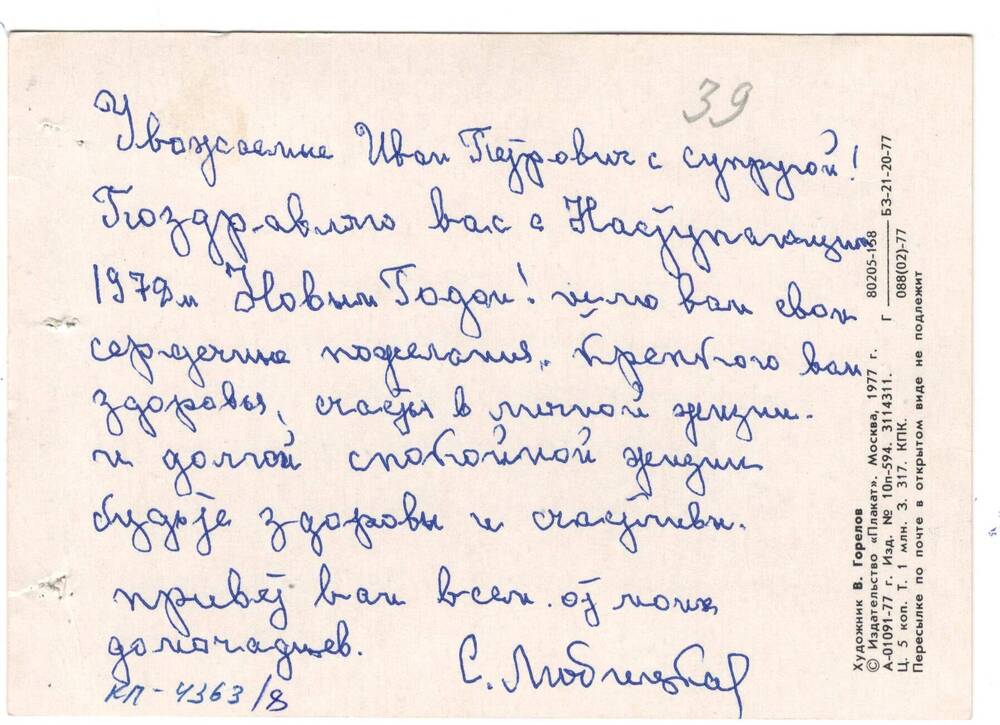 39
Уважаемые Иван Петрович с супругой!
Поздравляю вас с Наступающим
1979м Новым Годом! шлю вам свои
сердечные пожелания. крепкого вам
здоровья, счастья в личной жизни.
и долгой спокойной жизни
будьте здоровы и счастливы.
привет вам всем. от моих
домочадцев.
С. Любицкая
КП-4363/8
Художник В. Горелов
© Издательство «Плакат». Москва, 1977 г. 80205-158
А-01091-77 г. Изд. № 10п-594. 3114311. Г ——— БЗ-21-20-77
Ц. 5 коп. Т. 1 млн. З. 317. КПК. 088(02)-77
Пересылке по почте в открытом виде не подлежит